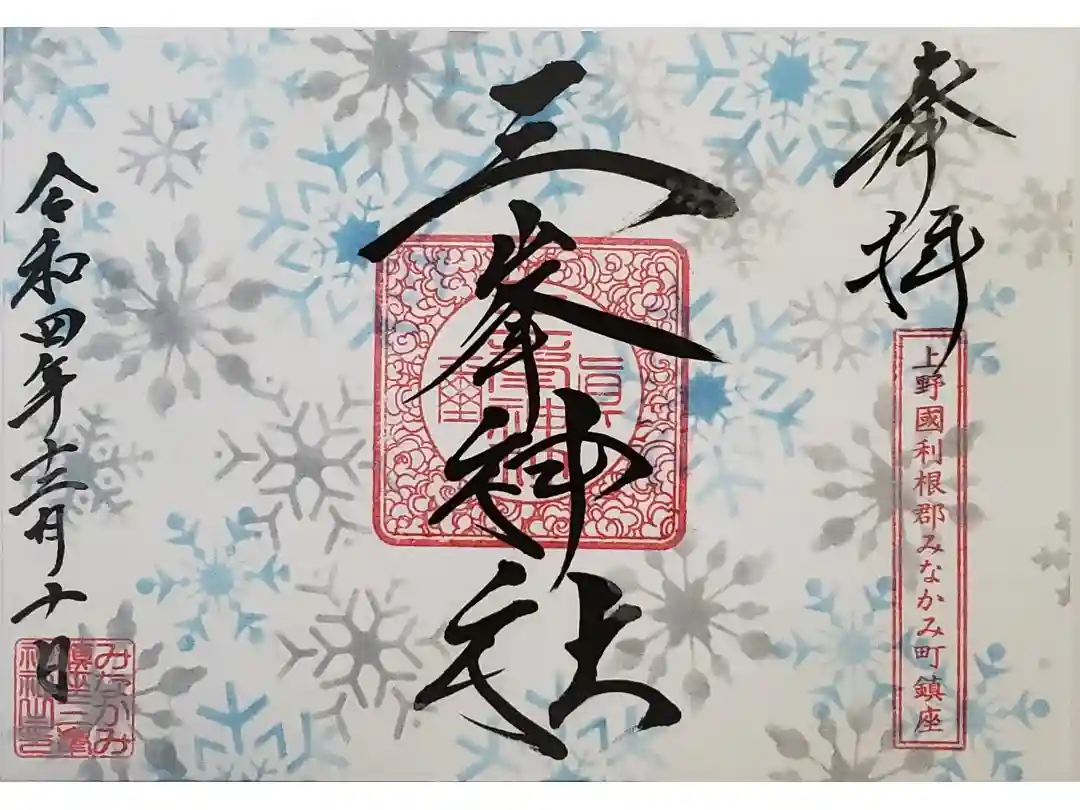 奉拝
上野國利根郡みなかみ町鎮座
三峯神社
令和四年十二月十日
みなかみ